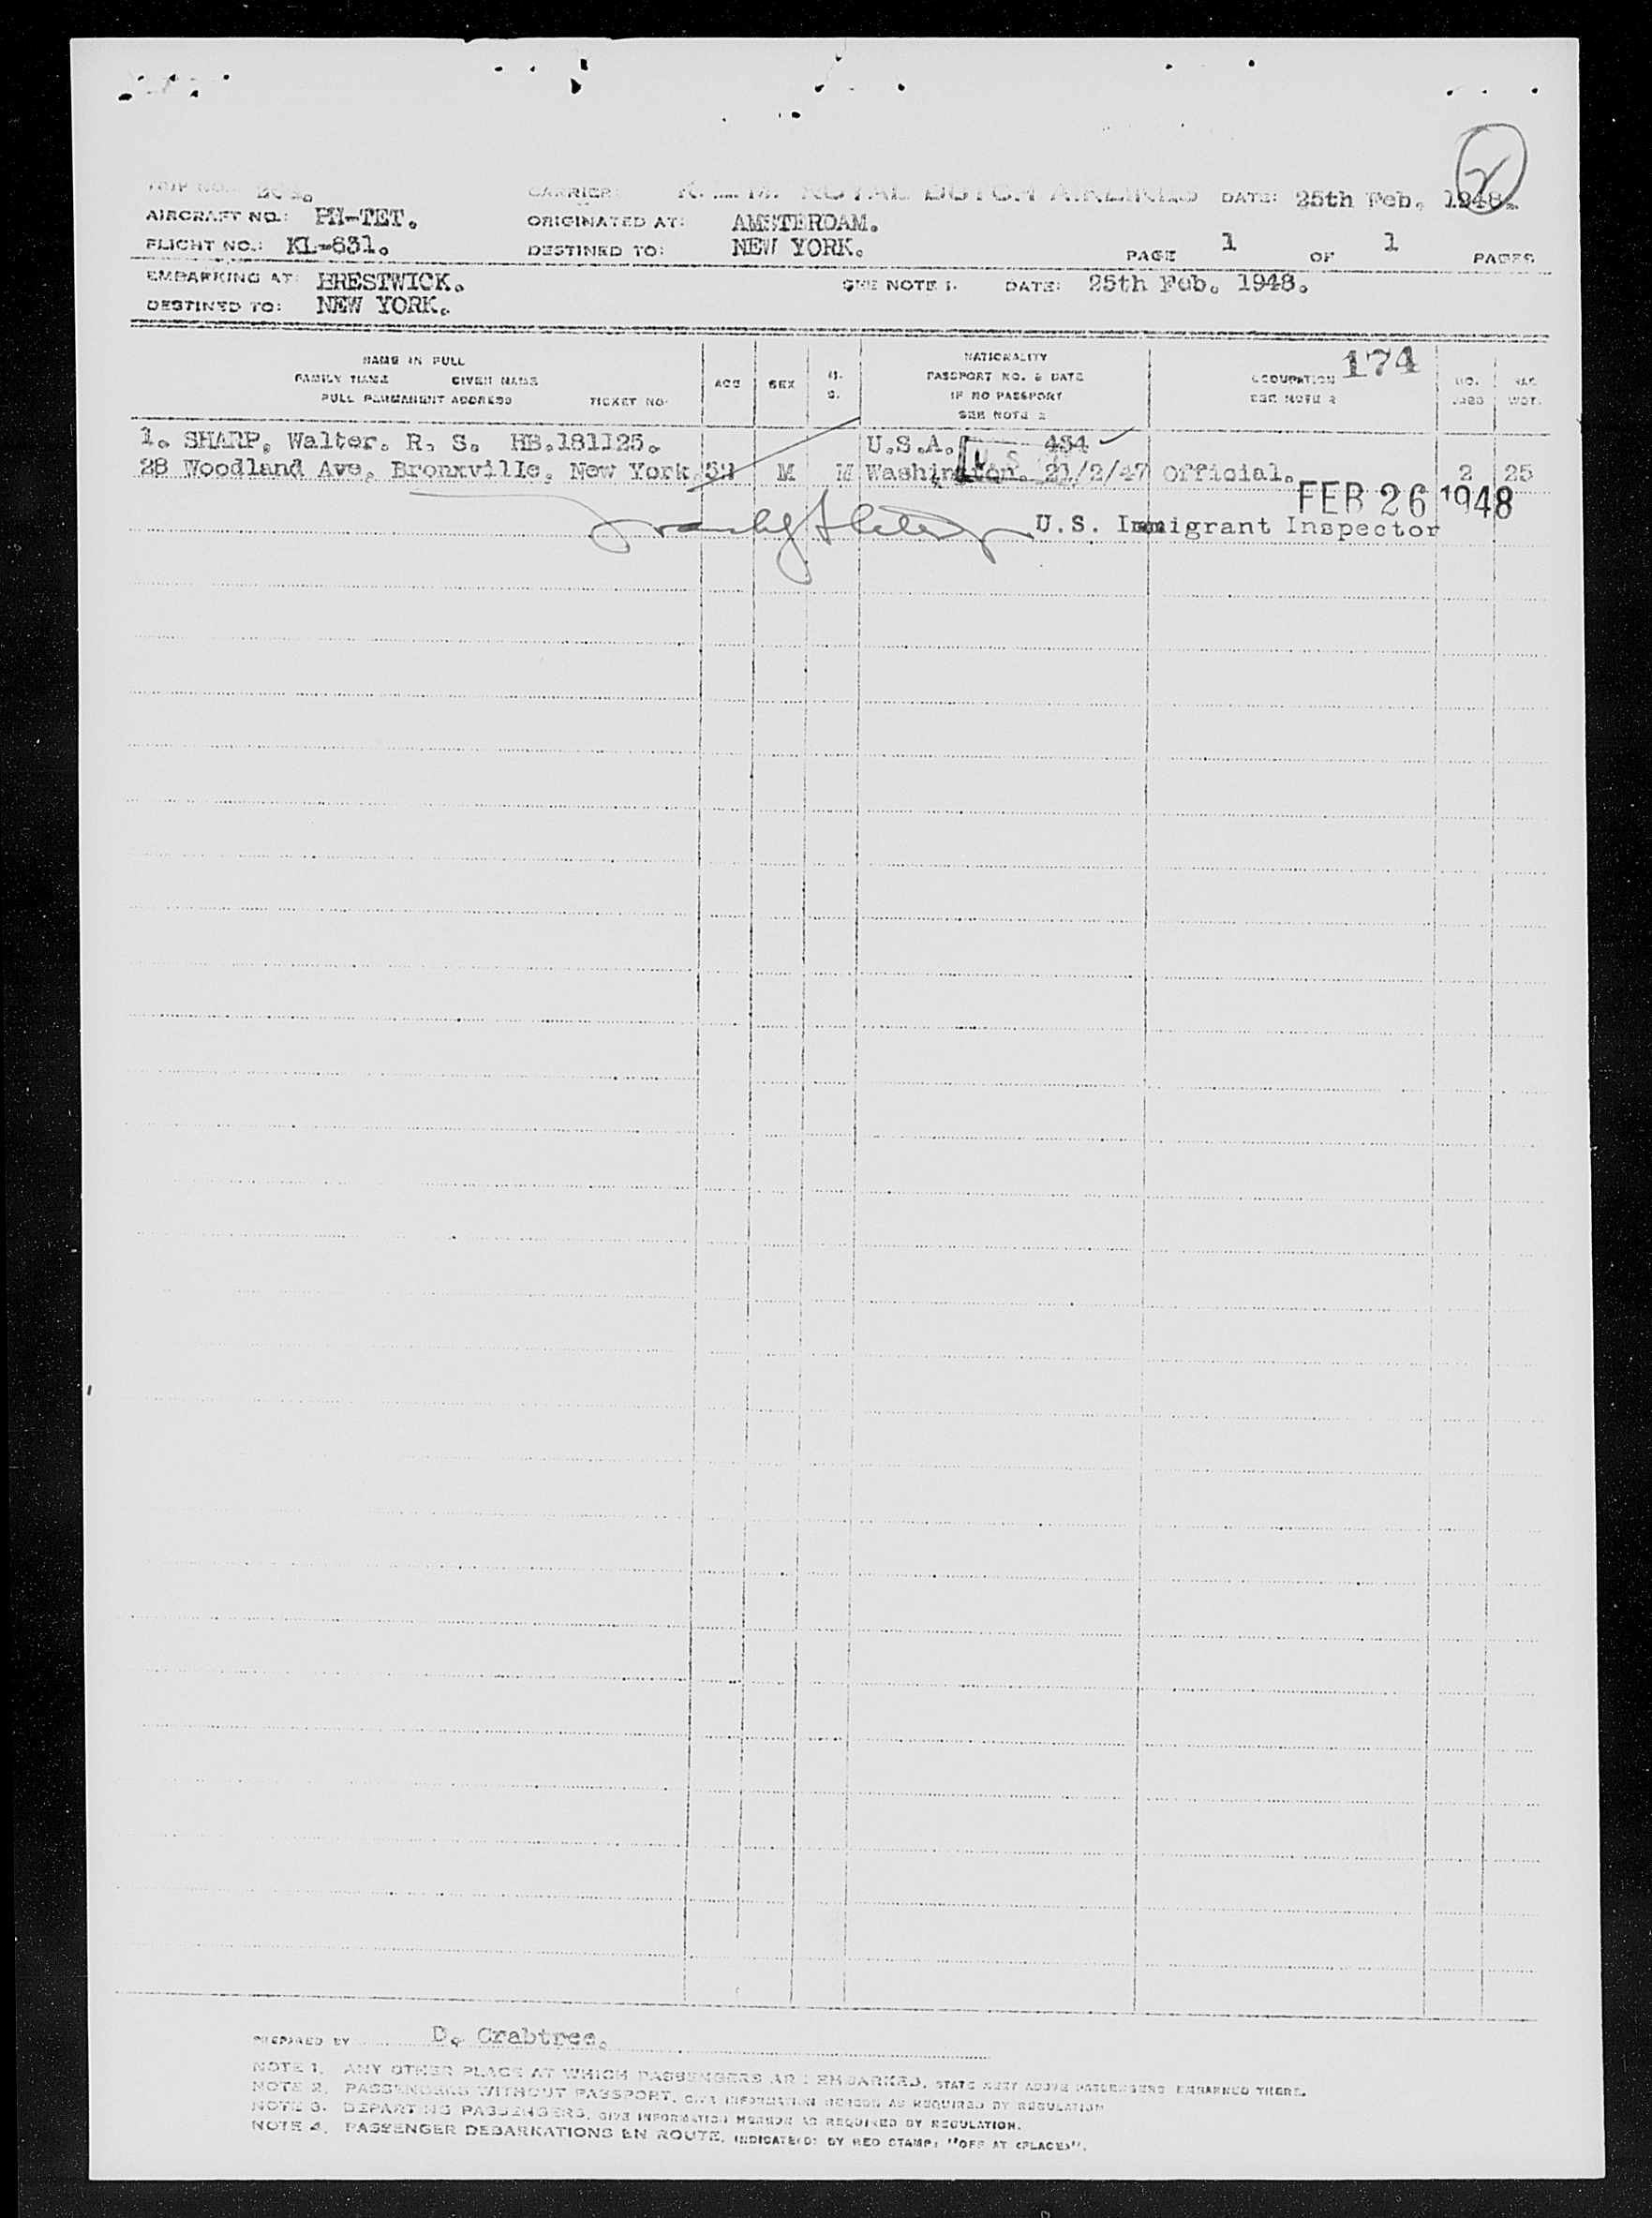 CARRIER: K.L.M. ROYAL DUTCH AIRLINES DATE: 25th Feb. 1948.
AIRCRAFT NO.: PH-TET. ORIGINATED AT: AMSTERDAM.
FLIGHT NO.: KL-631. DESTINED TO: NEW YORK. PAGE 1 OF 1 PAGES
EMBARKING AT: PRESTWICK. SEE NOTE 1. DATE: 25th Feb. 1948.
DESTINED TO: NEW YORK.
174
NAME IN FULL
FAMILY NAME GIVEN NAME
FULL PERMANENT ADDRESS TICKET NO.
AGE SEX M. S.
NATIONALITY
PASSPORT NO. & DATE
IF NO PASSPORT
SEE NOTE 2
OCCUPATION
SEE NOTE 2
NO.
WGT.
1. SHARP, Walter. R. S. HB.181125. U.S.A. 434
28 Woodland Ave, Bronxville, New York M M Washington. 21/2/47 Official. 2 25
FEB 26 1948
U.S. Immigrant Inspector
PREPARED BY D. Crabtree.
NOTE 1. ANY OTHER PLACE AT WHICH PASSENGERS ARE EMBARKED, STATE JUST ABOVE PASSENGERS EMBARKED THERE.
NOTE 2. PASSENGERS WITHOUT PASSPORT, GIVE INFORMATION HEREON AS REQUIRED BY REGULATION
NOTE 3. DEPARTING PASSENGERS, GIVE INFORMATION HEREON AS REQUIRED BY REGULATION.
NOTE 4. PASSENGER DEBARKATIONS EN ROUTE, INDICATE(D) BY RED STAMP: "OFF AT (PLACE)".